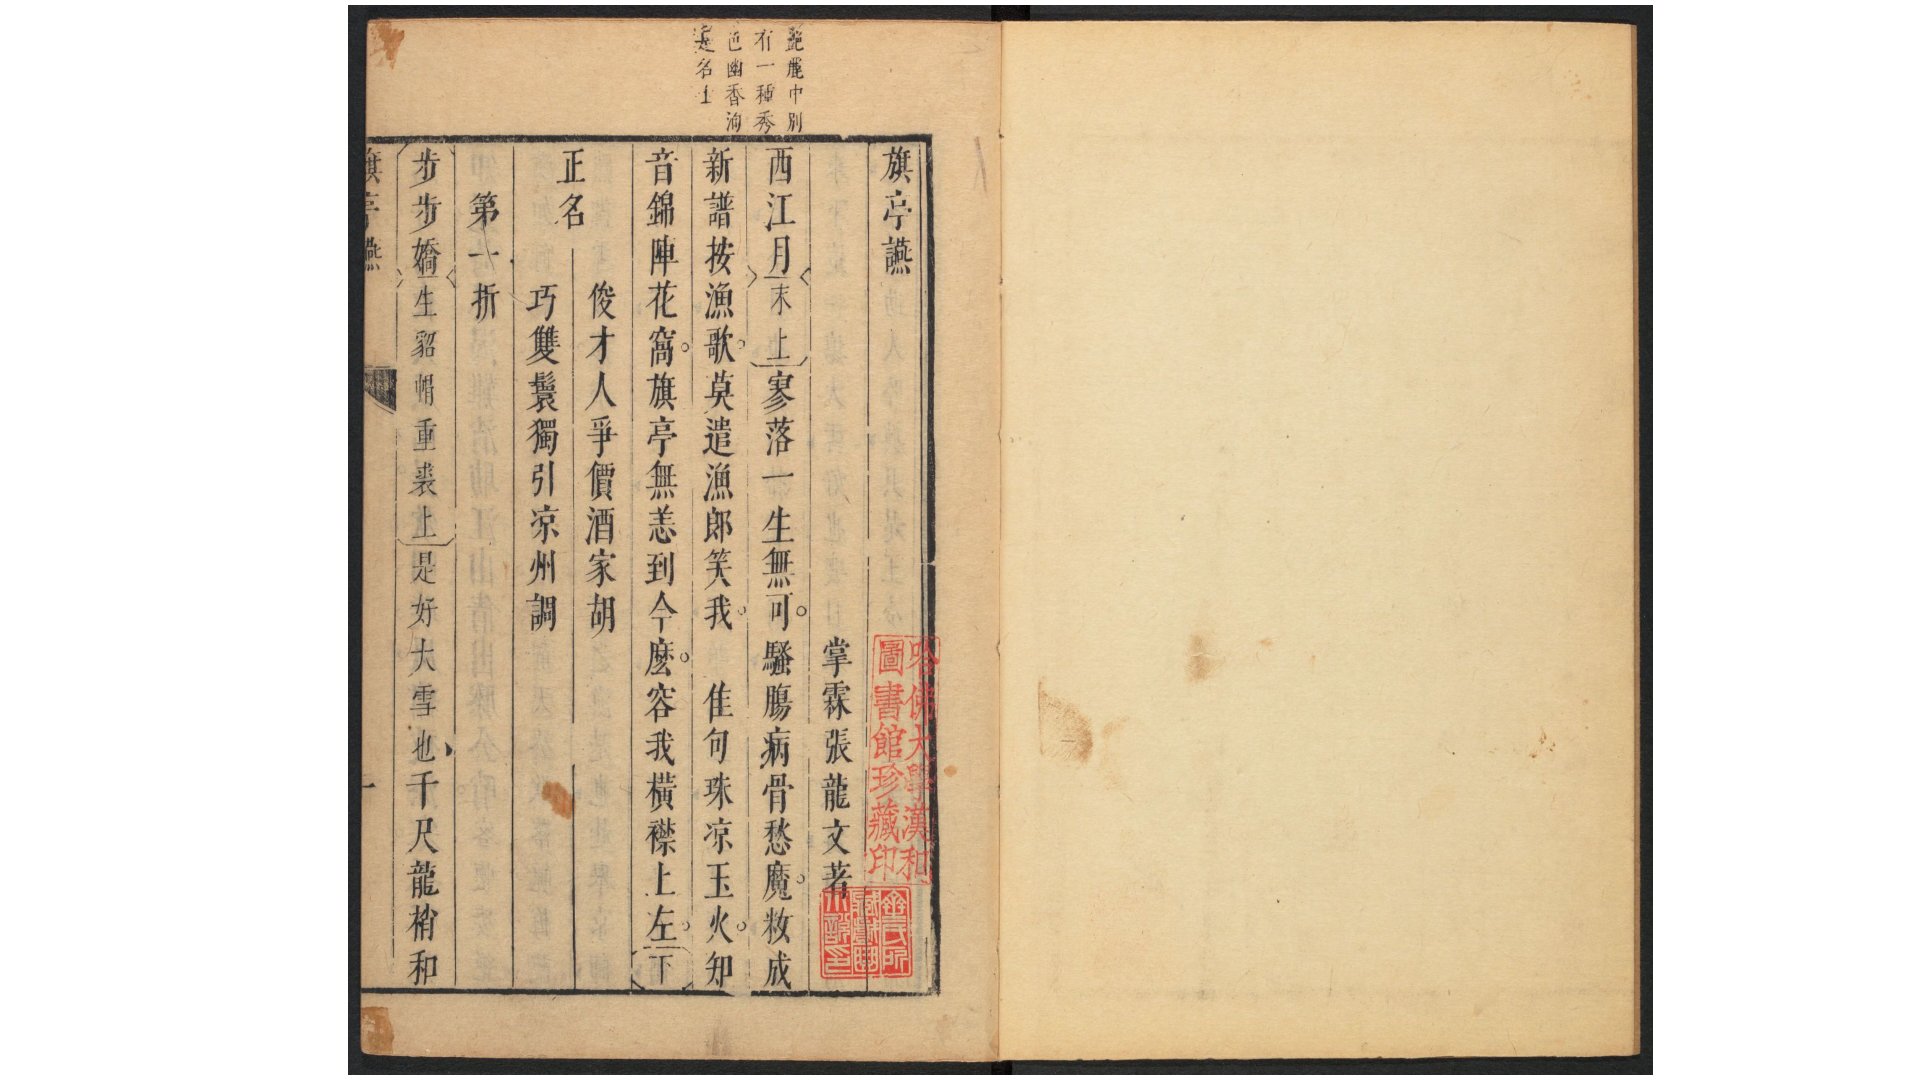 艷麗中別
有一種秀
色幽香洵
是名士
旗亭讌
掌霖張龍文著
西江月末上寥落一生無可騷腸病骨愁魔妝成
新譜按漁歌莫遣漁郎笑我 佳句珠凉玉火却
音錦陣花窩旗亭無恙到今麽容我橫襟上左下
正名
俊才人爭價酒家胡
巧雙鬟獨引凉州調
第一折
步步嬌生貂帽重裘上是好大雪也千尺龍梢和
旗亭讌
一
哈佛大學漢和
圖書館珍藏印